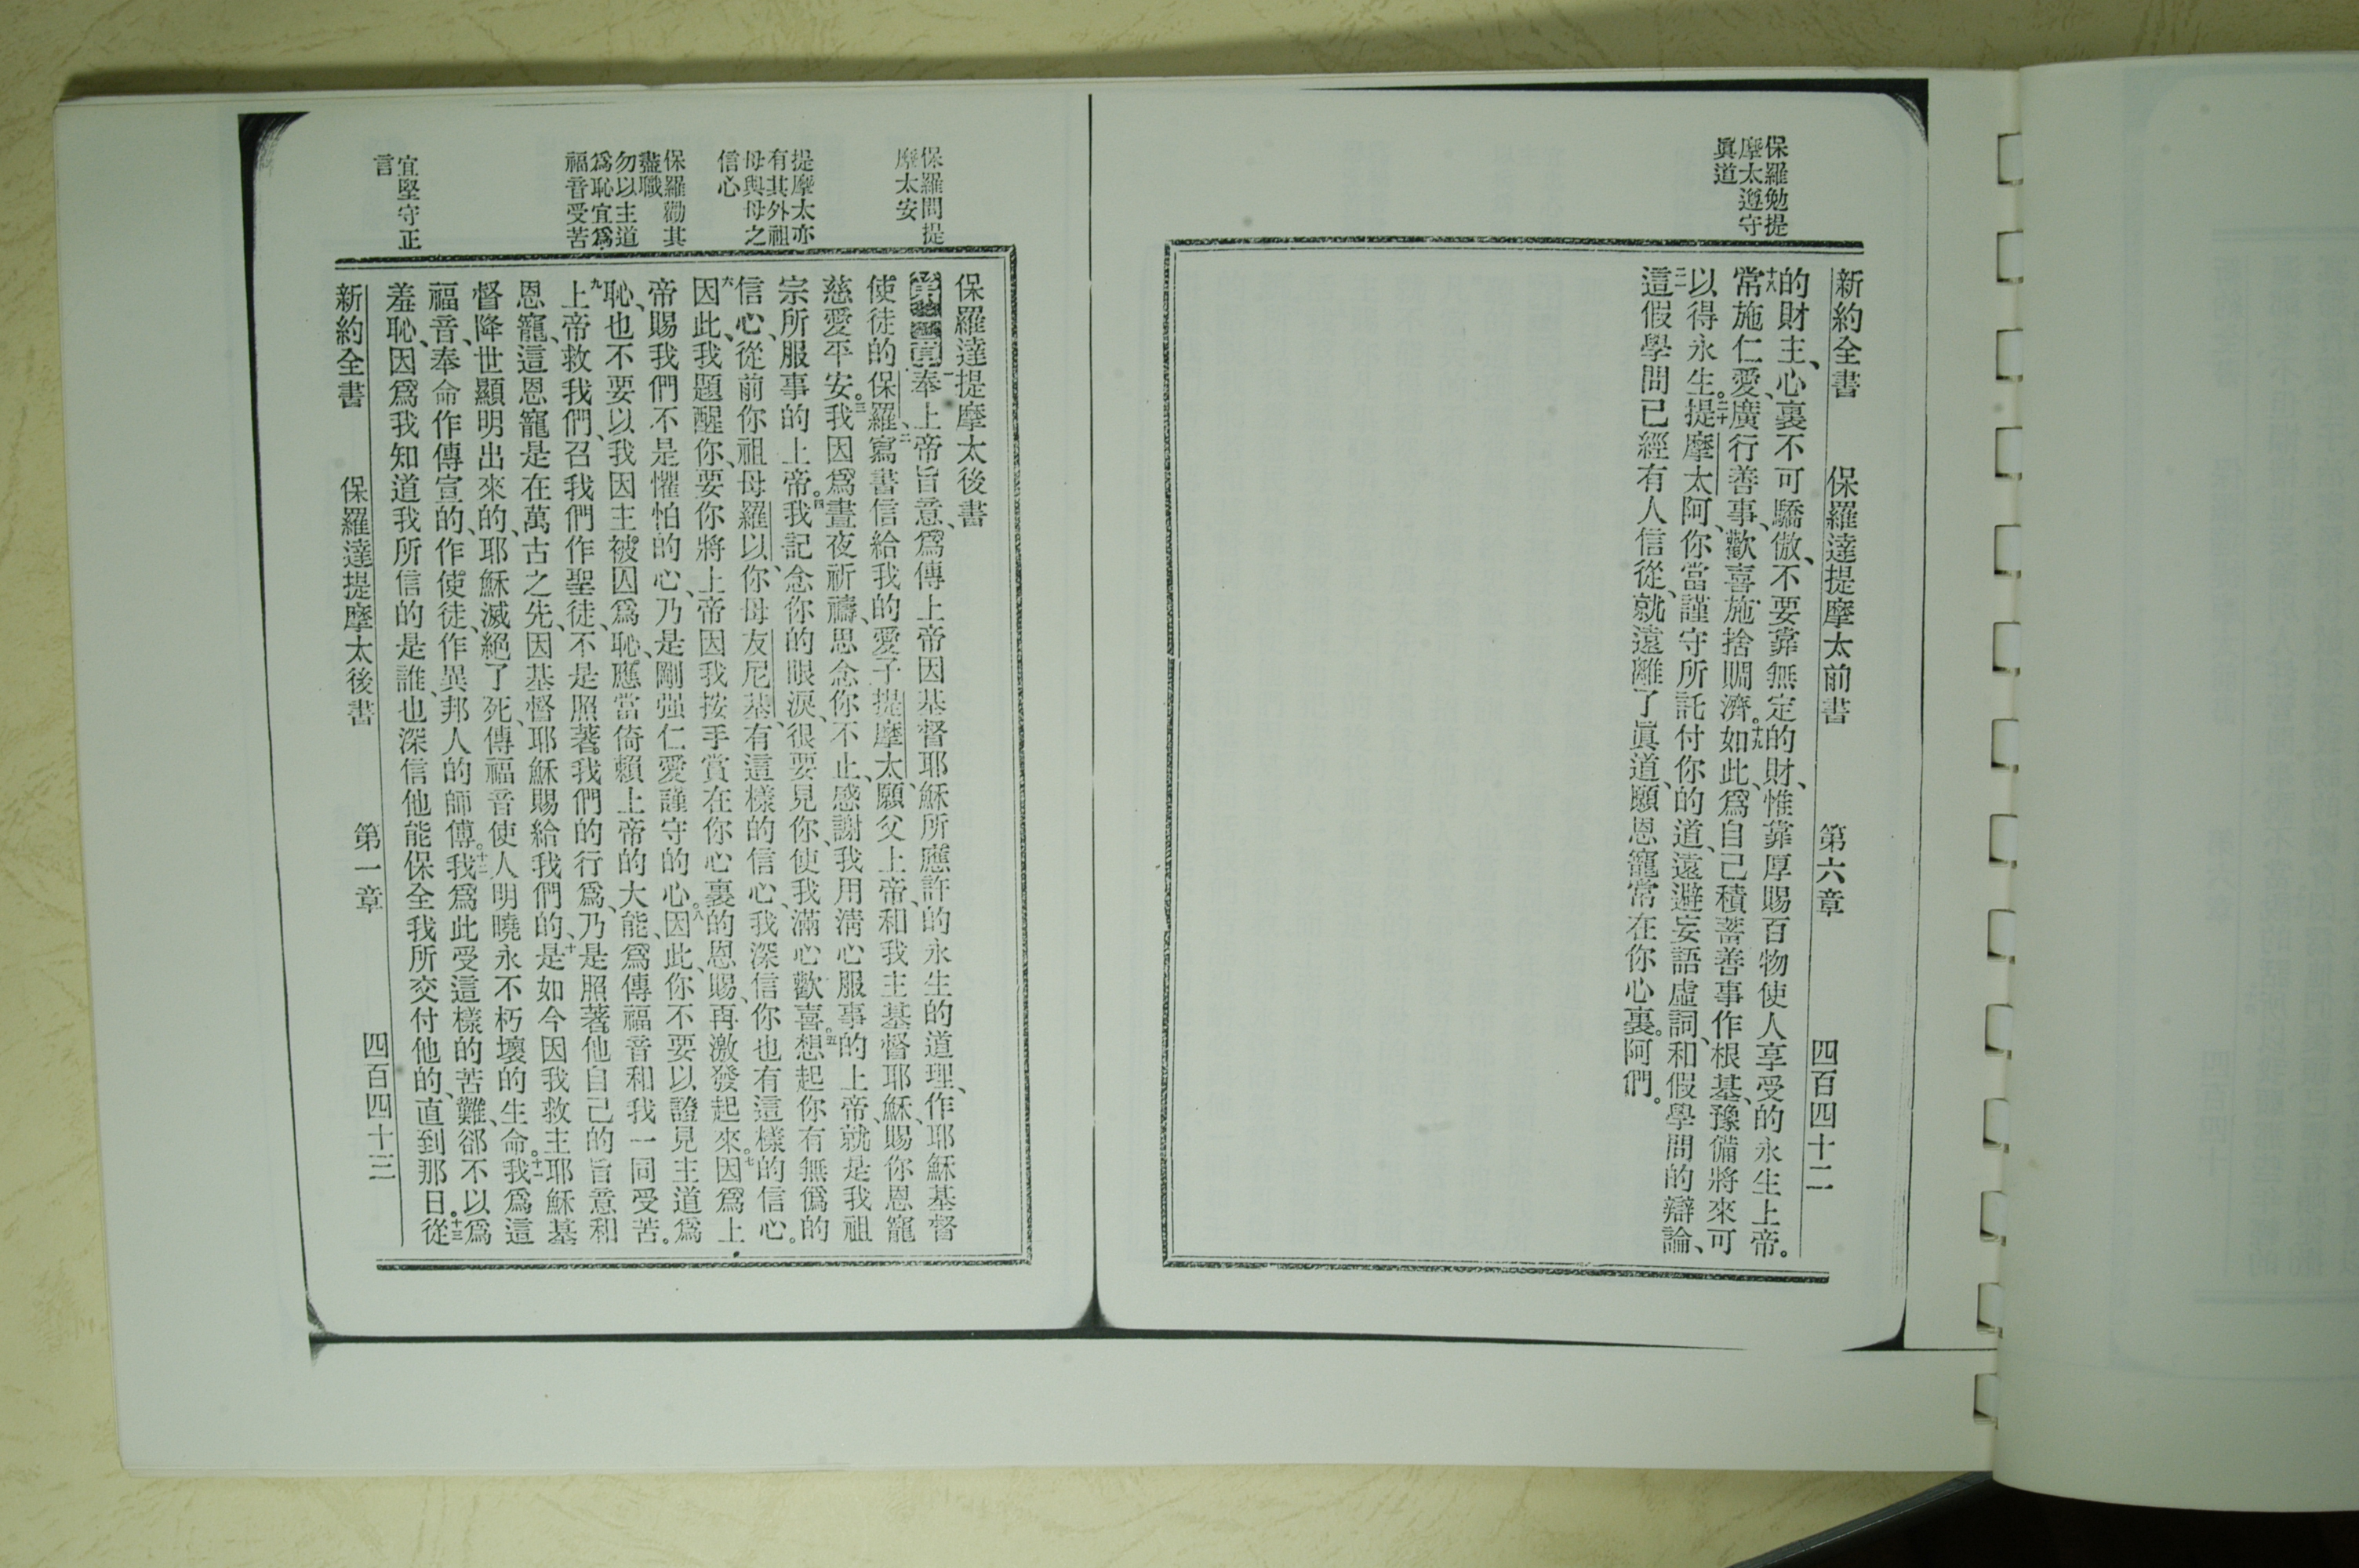 保羅勉提
摩太遵守
眞道
新約全書　保羅達提摩太前書　第六章　四百四十二
的財主、心裏不可驕傲、不要靠無定的財、惟靠厚賜百物使人享受的永生上帝。
十八常施仁愛、廣行善事、歡喜施捨賙濟。十九如此、爲自己積蓄善事作根基、豫備將來可
以得永生。二十提摩太阿、你當謹守所託付你的道、遠避妄語虛詞、和假學問的辯論、
二一這假學問已經有人信從、就遠離了眞道、願恩寵常在你心裏。阿們。
保羅問提
摩太安
提摩太亦
有其外祖
母與母之
信心
保羅勸其
盡職
勿以主道
爲恥宜爲
福音受苦
宜堅守正
言
保羅達提摩太後書
第一章一奉上帝旨意、爲傳上帝因基督耶穌所應許的永生的道理、作耶穌基督
使徒的保羅、二寫書信給我的愛子提摩太、願父上帝、和我主基督耶穌、賜你恩寵
慈愛平安。三我因爲晝夜祈禱、思念你不止、感謝我用淸心服事的上帝、就是我祖
宗所服事的上帝。四我記念你的眼淚、很要見你、使我滿心歡喜。五想起你有無僞的
信心、從前你祖母羅以、你母友尼基、有這樣的信心、我深信你也有這樣的信心。
六因此、我題醒你、要你將上帝因我按手賞在你心裏的恩賜、再激發起來。七因爲上
帝賜我們不是懼怕的心、乃是剛强仁愛謹守的心。八因此、你不要以證見主道爲
恥、也不要以我因主被囚爲恥、應當倚賴上帝的大能、爲傳福音和我一同受苦。
九上帝救我們、召我們作聖徒、不是照著我們的行爲、乃是照著他自己的旨意和
恩寵、這恩寵是在萬古之先、因基督耶穌賜給我們的、十是如今因我救主耶穌基
督降世顯明出來的、耶穌滅絕了死、傳福音使人明曉永不朽壞的生命。十一我爲這
福音、奉命作傳宣的、作使徒、作異邦人的師傅。十二我爲此受這樣的苦難、郤不以爲
羞恥、因爲我知道我所信的是誰、也深信他能保全我所交付他的、直到那日。十三從
新約全書　保羅達提摩太後書　第一章　四百四十三